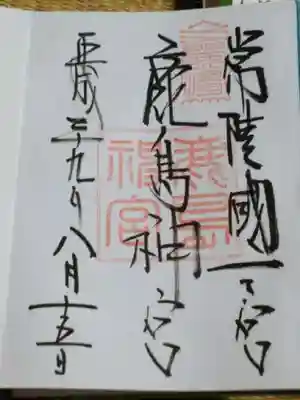 常陸國一之宮
鹿島神宮
平成二十九年八月十五日
鹿島神宮